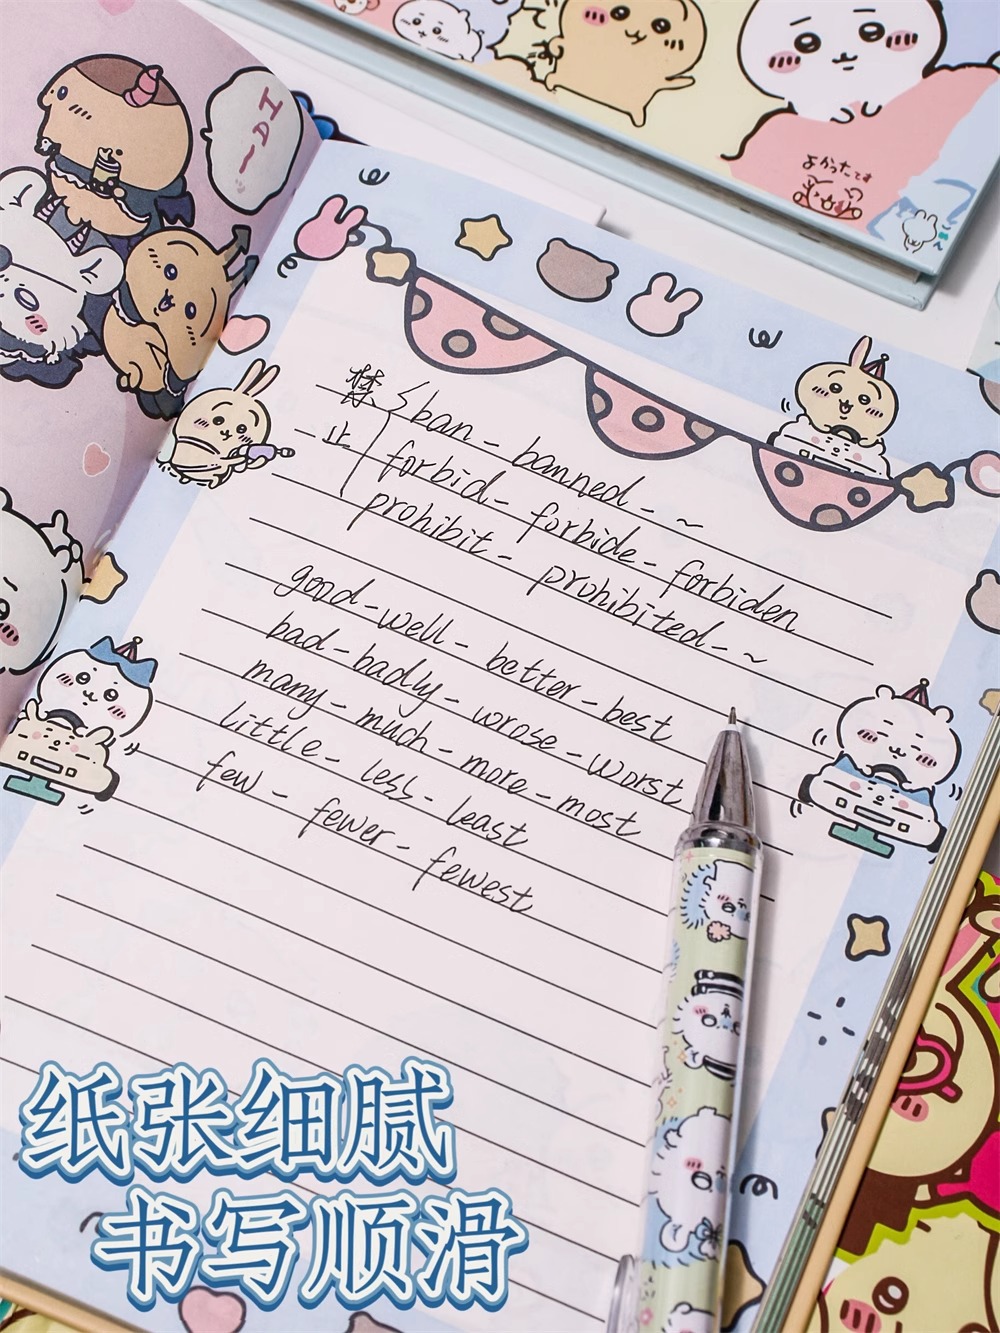 よかったです
禁 ban - banned - ~
止 forbid - forbide - forbiden
prohibit - prohibited - ~
good - well - better - best
bad - badly - wrose - worst
many - much - more - most
little - less - least
few - fewer - fewest
纸张细腻
书写顺滑